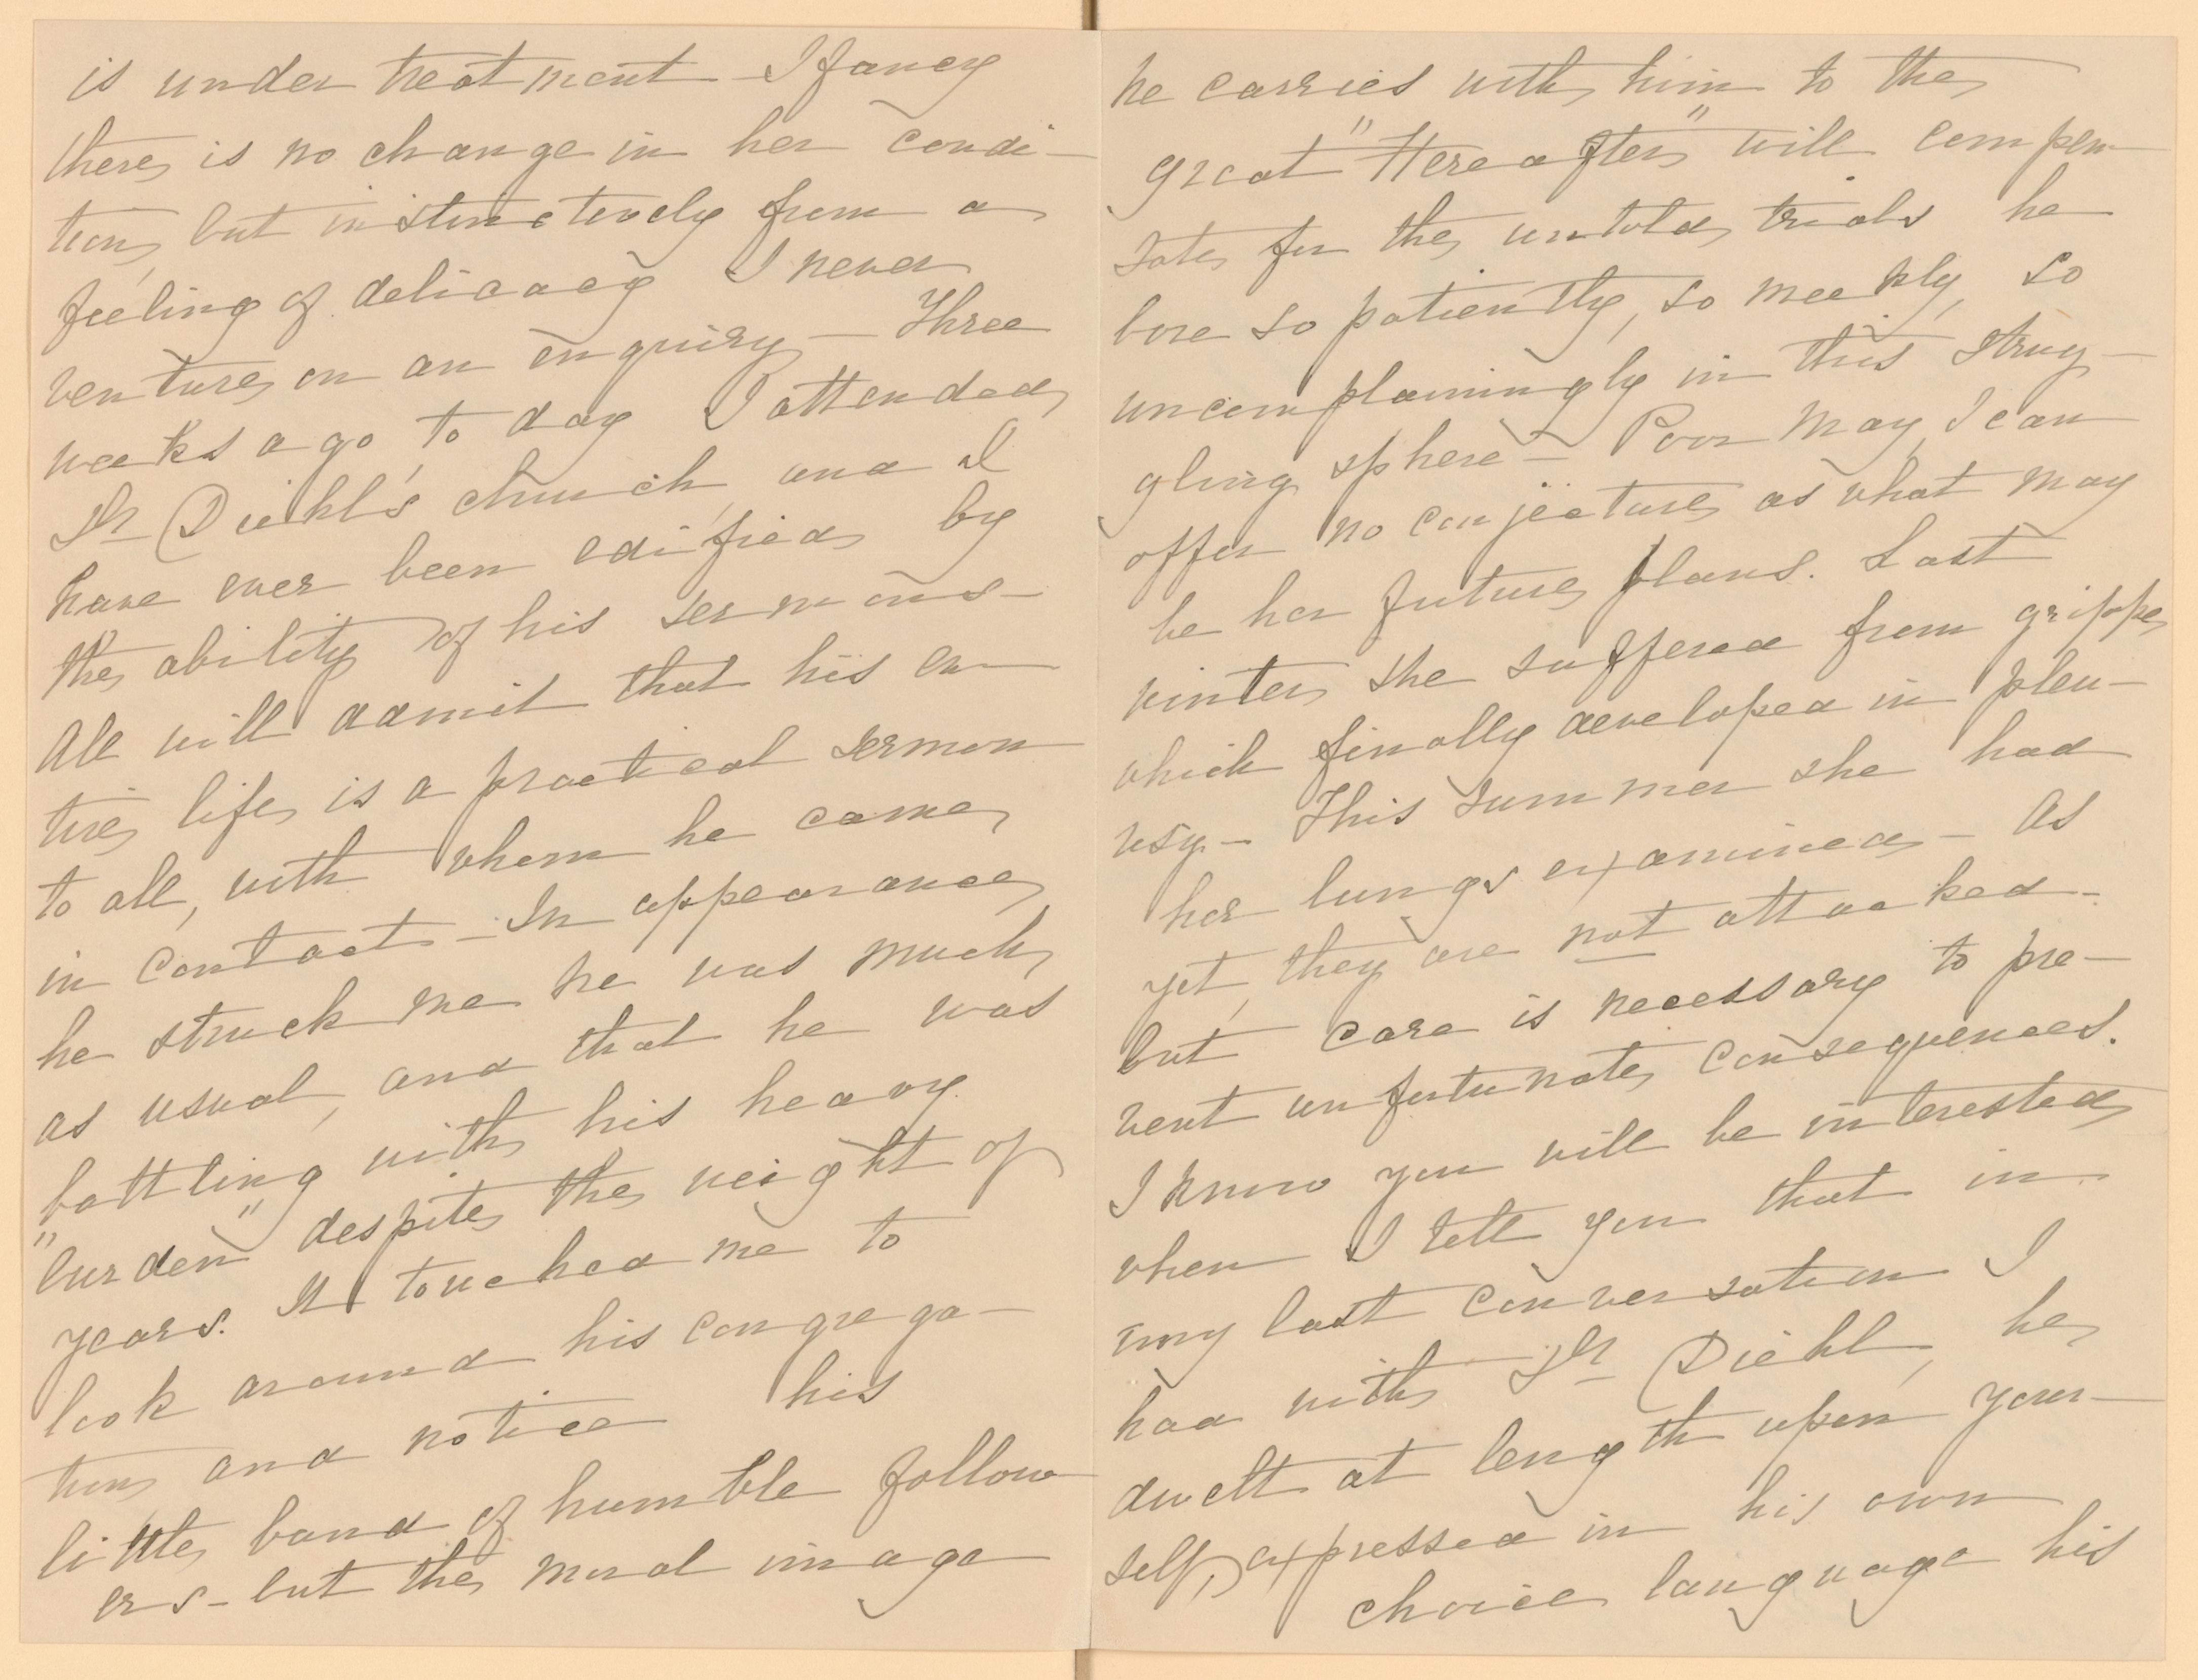 is under treatment – I fancy
there is no change in her condi-
tion, but instinctively from a
feeling of delicacy I never
venture on an enquiry – Three
weeks ago to day I attended
Dr Diehl's church, and I
have ever been edified by
the ability of his sermons –
All will admit that his en-
tire life is a practical sermon
to all, with whom he came
in contact – In appearance
he struck me he was much
as usual, and that he was
battling with his heavy
"burden" despite the weight of
years. It touched me to
look around his congrega-
tion and notice his
little band of humble follow
ers – but the moral image
he carries with him to the
great "Hereafter" will compen-
sate for the untold trials he
bore so patiently, so meekly, so
uncomplainingly in this strug-
gling sphere – Poor May, I can
offer no conjecture as what may
be her future plans. Last
winter she suffered from grippe
which finally developed in pleu-
risy – This summer she had
her lungs examined – As
yet, they are not attacked –
but care is necessary to pre-
vent unfortunate consequences.
I know you will be interested
when I tell you that in
my last conversation I
had with Dr Diehl, he
dwelt at length upon your-
self, expressed in his own
choice language his